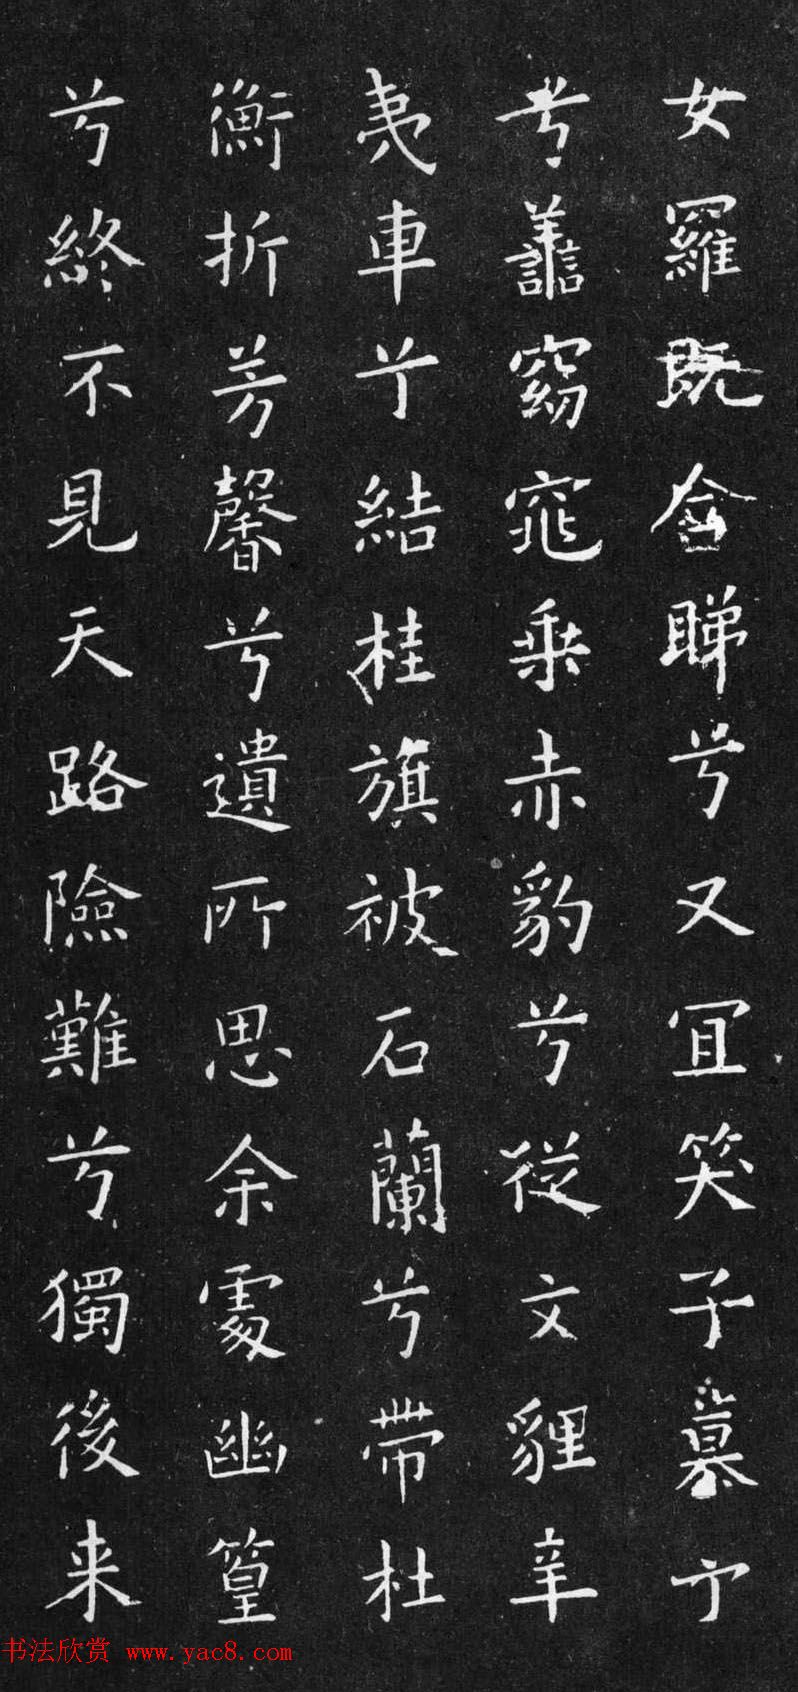 女羅既含睇兮又冝笑子慕予
兮善窈窕乗赤豹兮從文貍辛
夷車兮結桂旗被石蘭兮帶杜
衡折芳馨兮遺所思余處幽篁
兮終不見天路險難兮獨後来
书法欣赏 www.yac8.com